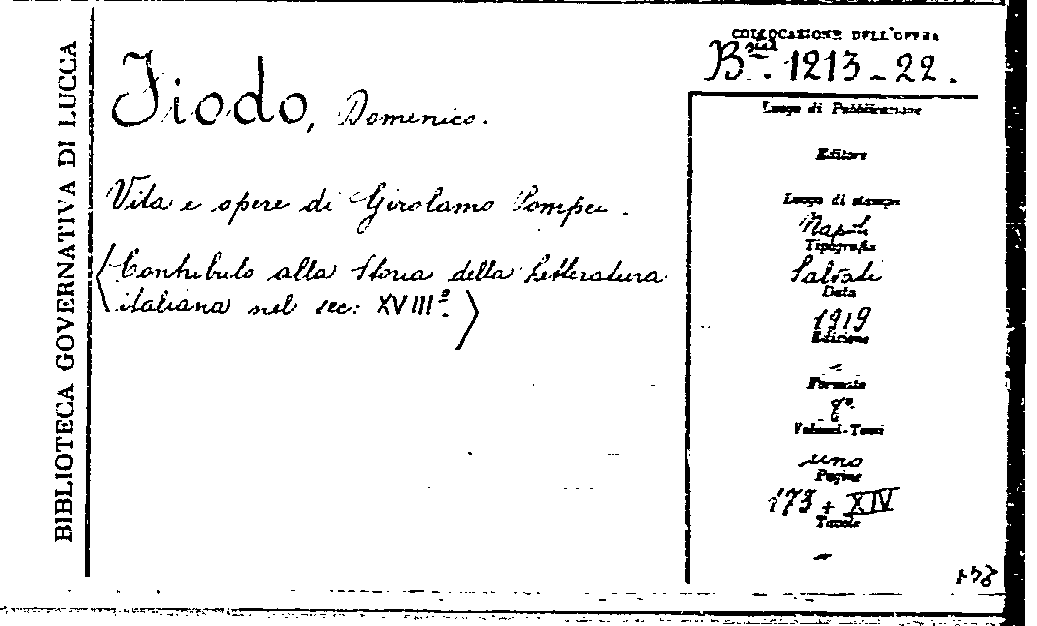 BIBLIOTECA GOVERNATIVA DI LUCCA
COLLOCAZIONE DELL'OPERA
B.sta 1213-22.
Tiodo, Domenico.
Vita e opere di Girolamo Pompei.
(Contributo alla Storia della Letteratura
italiana nel sec: XVIIIº.)
Luogo di Pubblicazione
Editore
Luogo di stampa
Napoli
Tipografia
Salvati
Data
1919
Edizione
–
Formato
8º.
Volumi-Tomi
uno
Pagine
173 + XIV
Tavole
–